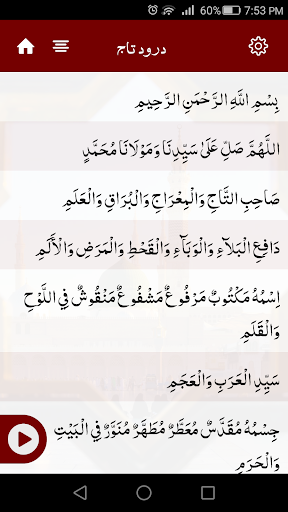 60% 7:53 PM
درود تاج
بِسْمِ اللَّهِ الرَّحْمَنِ الرَّحِيمِ
اللَّهُمَّ صَلِّ عَلَىٰ سَيِّدِنَا وَمَوْلَانَا مُحَمَّدٍ
صَاحِبِ التَّاجِ وَالْمِعْرَاجِ وَالْبُرَاقِ وَالْعَلَمِ
دَافِعِ الْبَلَآءِ وَالْوَبَآءِ وَالْقَحْطِ وَالْمَرَضِ وَالْأَلَمِ
اِسْمُهُ مَكْتُوبٌ مَرْفُوعٌ مَشْفُوعٌ مَنْقُوشٌ فِي اللَّوْحِ
وَالْقَلَمِ
سَيِّدِ الْعَرَبِ وَالْعَجَمِ
جِسْمُهُ مُقَدَّسٌ مُعَطَّرٌ مُطَهَّرٌ مُنَوَّرٌ فِي الْبَيْتِ
وَالْحَرَمِ